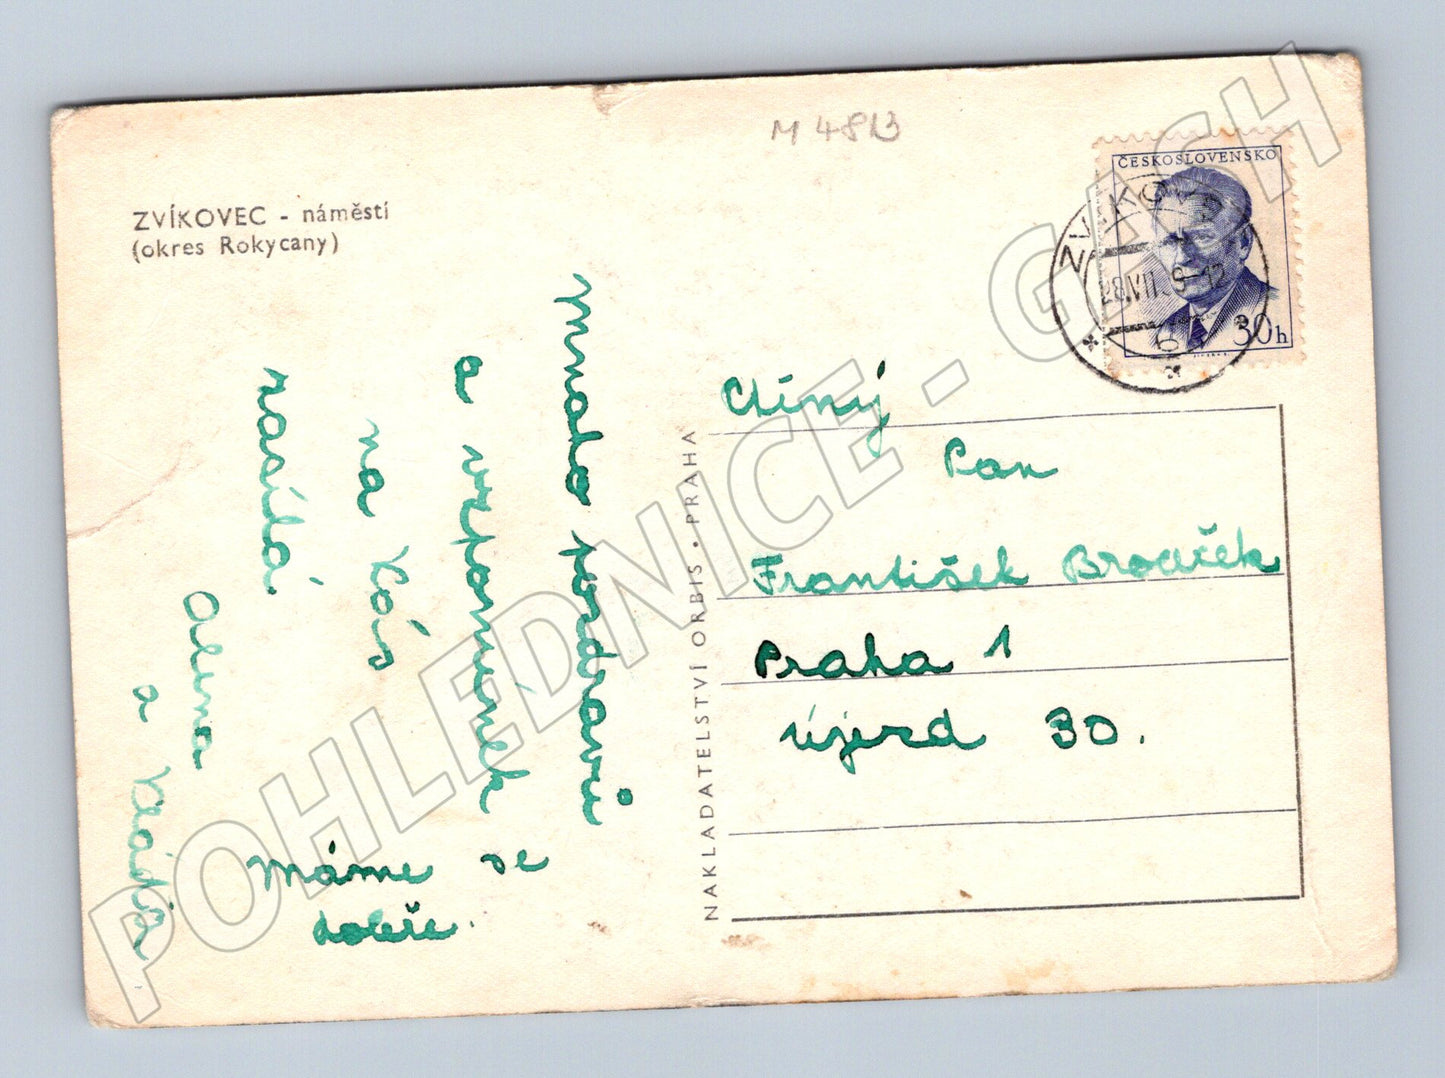 M 4813
ZVÍKOVEC - náměstí
(okres Rokycany)
ČESKOSLOVENSKO
30h
ZVÍKOVEC
28.VII. 9-12
Mnoho pozdravů
a vzpomínek
na Vás
zasílá
Alena
a Vláďa
Máme se
dobře.
NAKLADATELSTVÍ ORBIS • PRAHA
Ctěný
Pan
František Brodček
Praha 1
Újezd 30.
POHLEDNICE - GASH